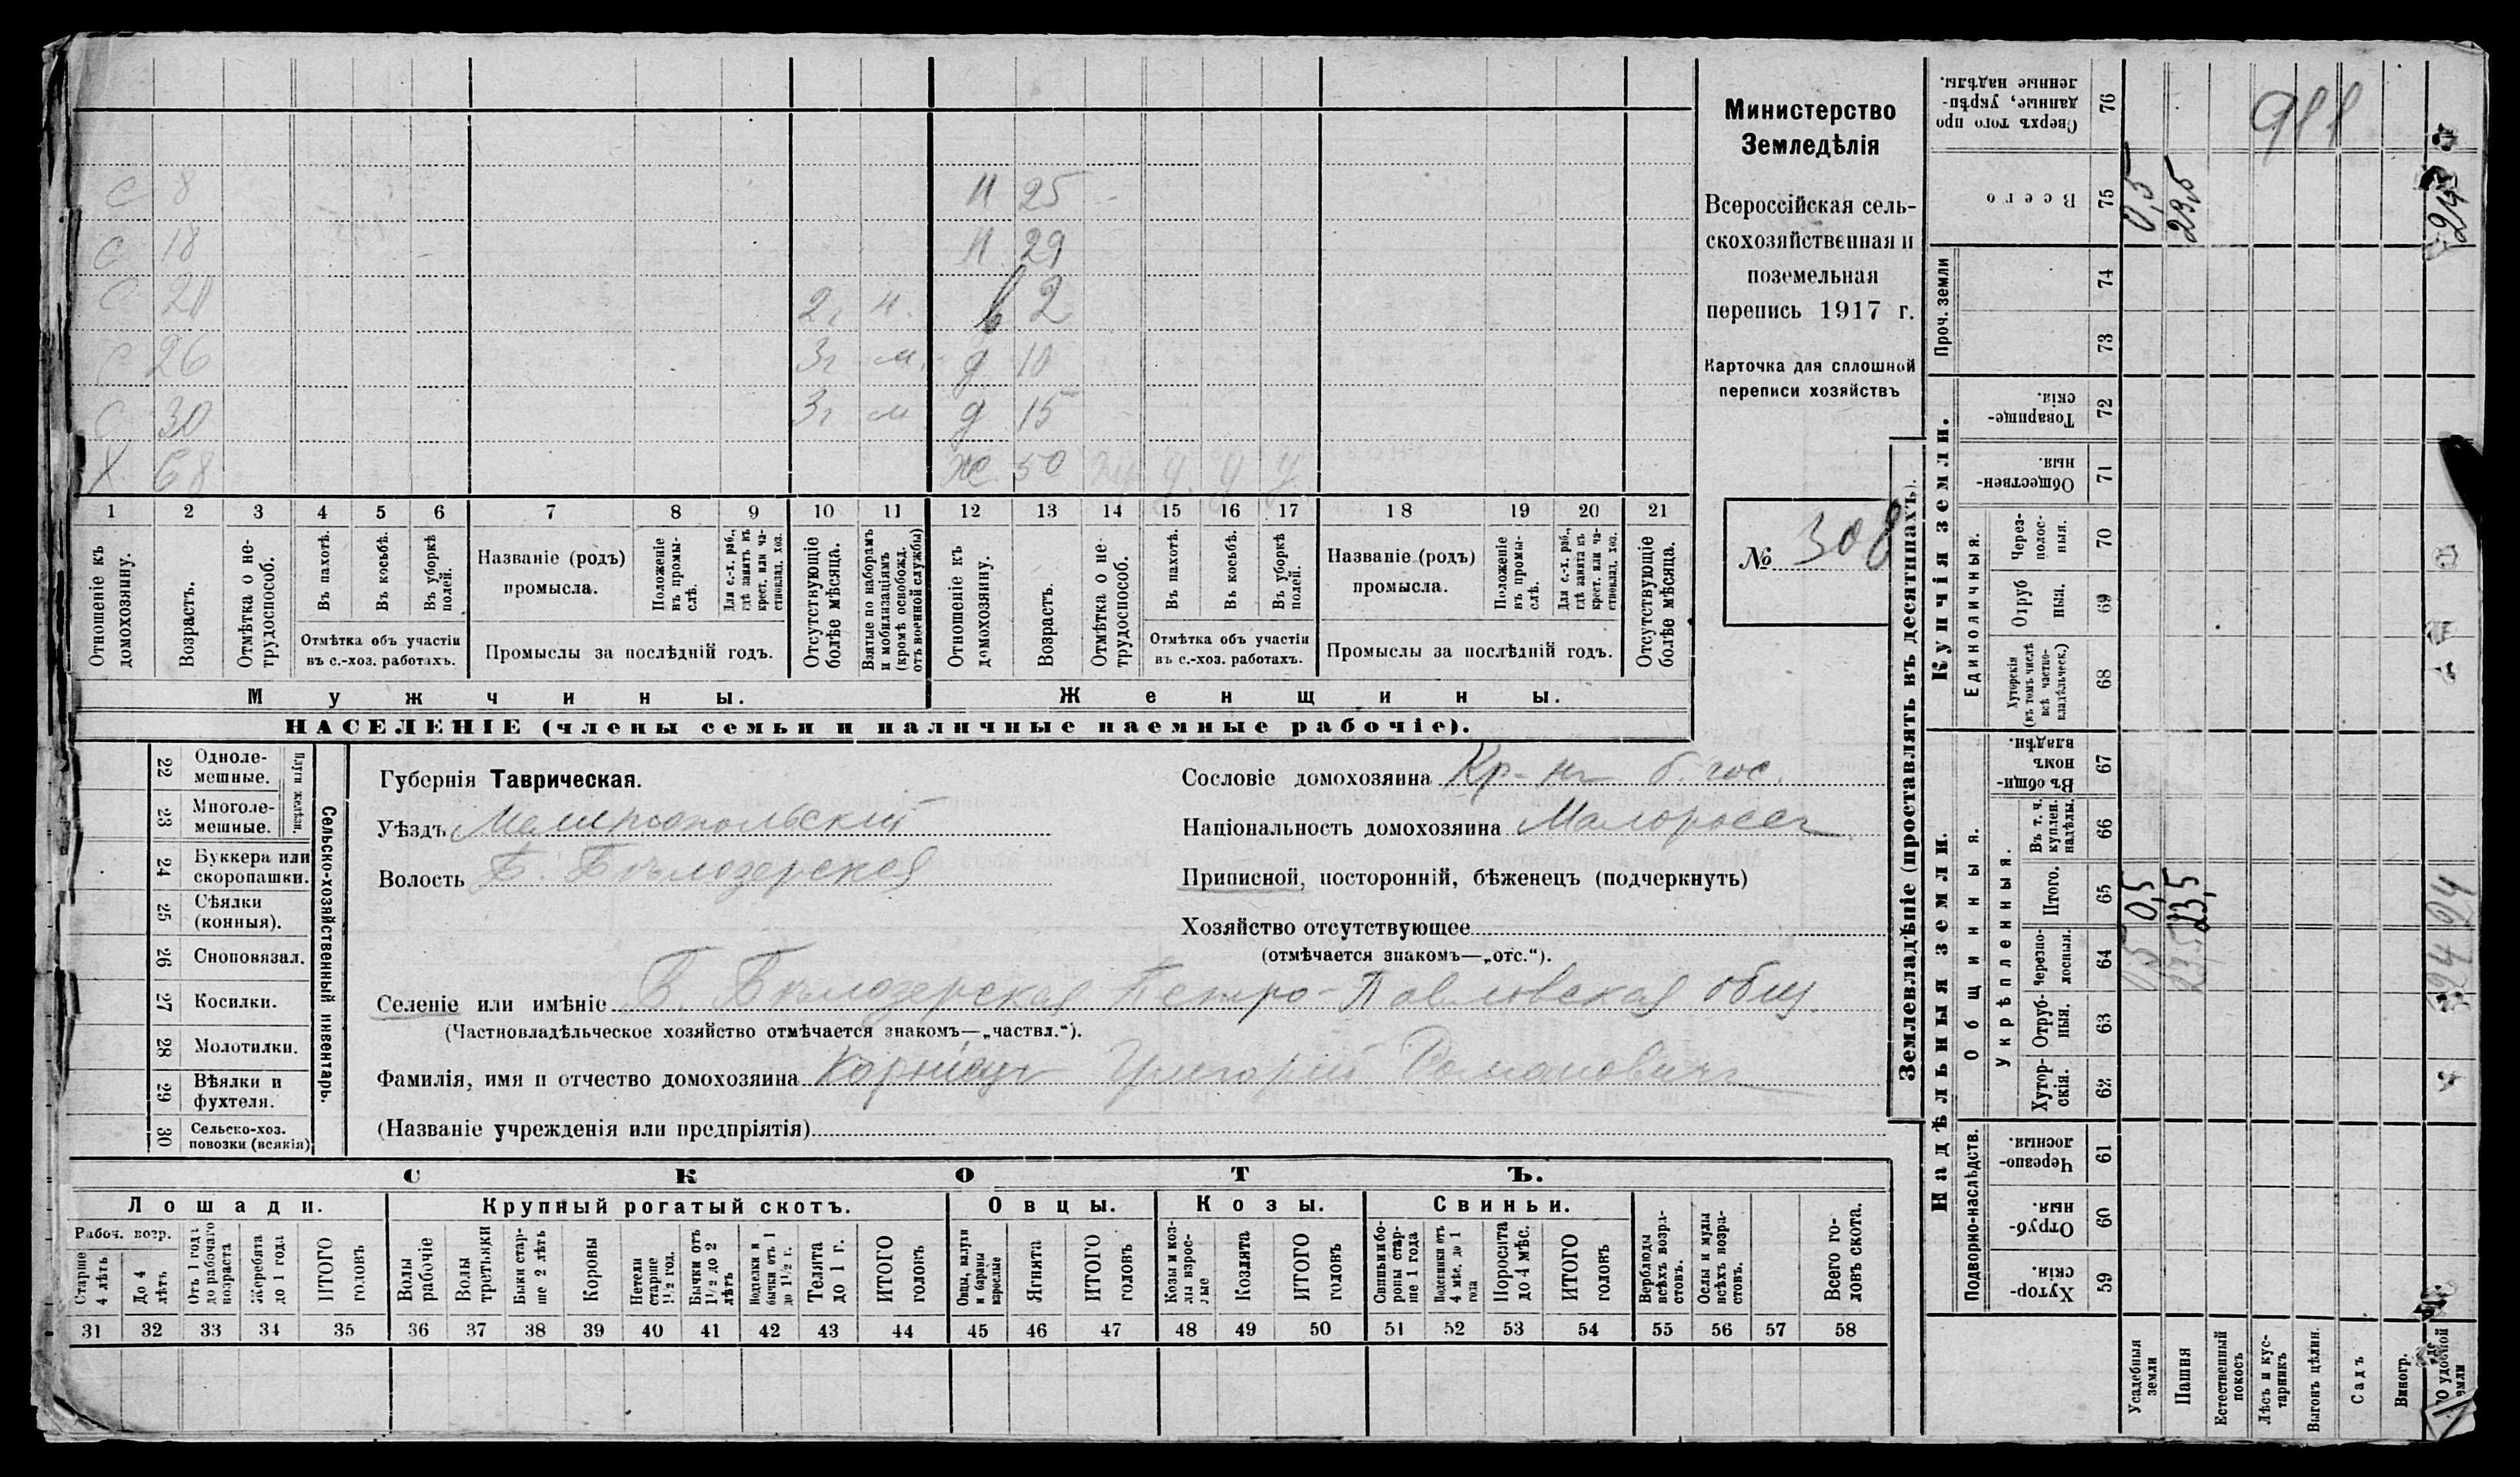 с 8 н 25
с 18 н 29
с 20 2г м. в 2
с 26 3г м. д 10
с 30 3г м д 15
Х 68 ж 50
1 2 3 4 5 6 7 8 9 10 11 12 13 14 15 16 17 18 19 20 21
Отношеніе къ домохозяину.
Возрастъ.
Отмѣтка о не-трудоспособ.
Въ пахотѣ.
Въ косьбѣ.
Въ уборкѣ полей.
Отмѣтка объ участіи
въ с.-хоз. работахъ.
Названіе (родъ)
промысла.
Положеніе въ промы-слѣ.
Для с.-х. раб., гдѣ занятъ въ крест. или ча-стновлад. хоз.
Промыслы за послѣдній годъ.
Отсутствующіе болѣе мѣсяца.
Взятые по наборамъ и мобилизаціямъ (кромѣ освобожд. отъ военной службы)
Отношеніе къ домохозяину.
Возрастъ.
Отмѣтка о не-трудоспособ.
Въ пахотѣ.
Въ косьбѣ.
Въ уборкѣ полей.
Отмѣтка объ участіи
въ с.-хоз. работахъ.
Названіе (родъ)
промысла.
Положеніе въ промы-слѣ.
Для с.-х. раб., гдѣ занята въ крест. или ча-стновлад. хоз.
Промыслы за послѣдній годъ.
Отсутствующіе болѣе мѣсяца.
Мужчины.
Женщины.
НАСЕЛЕНІЕ (члены семьи и наличные наемные рабочіе).
Министерство
Земледѣлія
Всероссійская сель-
скохозяйственная и
поземельная
перепись 1917 г.
Карточка для сплошной
переписи хозяйствъ
№ 308
22 Одноле-мешные.
23 Многоле-мешные.
Плуги желѣзн.
24 Буккера или скоропашки.
25 Сѣялки (конныя).
26 Сноповязал.
27 Косилки.
28 Молотилки.
29 Вѣялки и фухтеля.
30 Сельско-хоз. повозки (всякія)
Сельско-хозяйственный инвентарь.
Губернія Таврическая.
Уѣздъ Мелитопольскій
Волость Б. Бѣлозерская
Сословіе домохозяина Кр-нъ б. гос.
Національность домохозяина Малороссъ
Приписной, посторонній, бѣженецъ (подчеркнуть)
Хозяйство отсутствующее
(отмѣчается знакомъ—„отс.“).
Селеніе или имѣніе Б. Бѣлозерская Петро-Павловская общ.
(Частновладѣльческое хозяйство отмѣчается знакомъ—„частвл.“).
Фамилія, имя и отчество домохозяина Корніецъ Григорій Романовичъ
(Названіе учрежденія или предпріятія)
СКОТЪ.
Лошади. Крупный рогатый скотъ. Овцы. Козы. Свиньи.
Рабоч. возр.
Старше 4 лѣтъ
До 4 лѣтъ
Отъ 1 года до рабочаго возраста
Жеребята до 1 года
ИТОГО головъ
Волы рабочіе
Волы третьяки
Быки стар-ше 2 лѣтъ
Коровы
Нетели старше 1½ год.
Бычки отъ 1½ до 2 лѣтъ
Неделки и бычки отъ 1 до 1½ г.
Телята до 1 г.
ИТОГО головъ
Овцы, валухи и бараны взрослые
Ягнята
ИТОГО головъ
Козы и коз-лы взрос-лые
Козлята
ИТОГО головъ
Свиньи и бо-ровы стар-ше 1 года
Подсвинки отъ 4 мѣс. до 1 года
Поросята до 4 мѣс.
ИТОГО головъ
Верблюды всѣхъ возра-стовъ.
Ослы и мулы всѣхъ возра-стовъ.
Всего го-ловъ скота.
31 32 33 34 35 36 37 38 39 40 41 42 43 44 45 46 47 48 49 50 51 52 53 54 55 56 57 58
Землевладѣніе (проставлять въ десятинахъ).
Надѣльныя земли.
Купчія земли.
Проч. земли
Подворно-наслѣдств.
Общинныя.
Укрѣпленныя.
Единоличныя.
Сверхъ того про данные, укрѣп-ленные надѣлы. 76
Всего 75 0,5 23,5
74
73
Товарище-скія. 72
Обществен-ныя. 71
Через-полос-ныя. 70
Отруб ныя. 69
Хуторскія (въ томъ числѣ всѣ частно-владѣльческ.) 68
Въ общи-номъ владѣн. 67
Въ т. ч. куплен. надѣлы. 66
Итого. 65 0,5 23,5
Черезпо-лосныя. 64 0,5 23,5
Отруб-ныя. 63
Хутор-скія. 62
Черезпо-лосныя. 61
Отруб-ныя. 60
Хутор-скія. 59
Усадебныя земли
Пашня
Естественный покосъ
Лѣсъ и кус-тарникъ
Выгонъ цѣлин.
Садъ
Виногр.
удобной земли
24
24 24